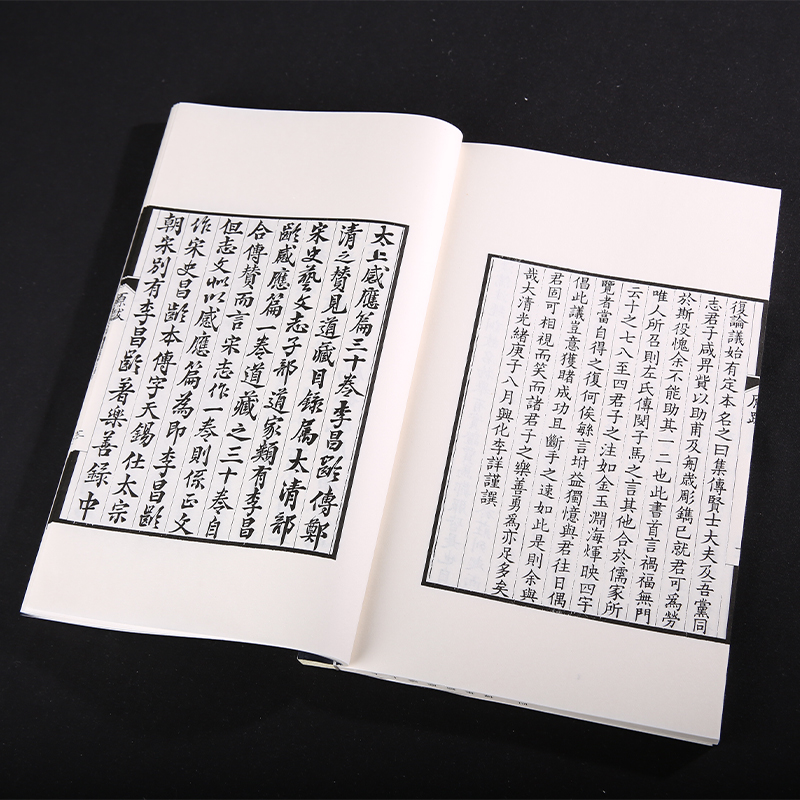 復論議始有定本名之曰集傳賢士大夫及吾黨同
志君子咸畀貲以助甫及朞歲彫鐫已就君可爲勞
於斯役愧余不能助其一二也此書首言禍福無門
唯人所召則左氏傳閔子馬之言其他合於儒家所
云十之七八至四君子之注如金玉淵海煇映四字
覽者當自得之復何俟緐言坿益獨憶與君往日偶
倡此議豈意獲睹成功且斷手之速如此是則余與
君固可相視而笑而諸君子之樂善勇爲亦足多矣
哉大清光緒庚子八月興化李詳謹譔
太上感應篇三十卷李昌齡傳鄭
清之贊見道藏目錄屬太清部
宋史藝文志子部道家類有李昌
齡感應篇一卷道藏之三十卷自
合傳贊而言宋志作一卷則係正文
但志文似以感應篇為即李昌齡
作宋史昌齡本傳字天錫仕太宗
朝宋別有李昌齡著樂善錄中